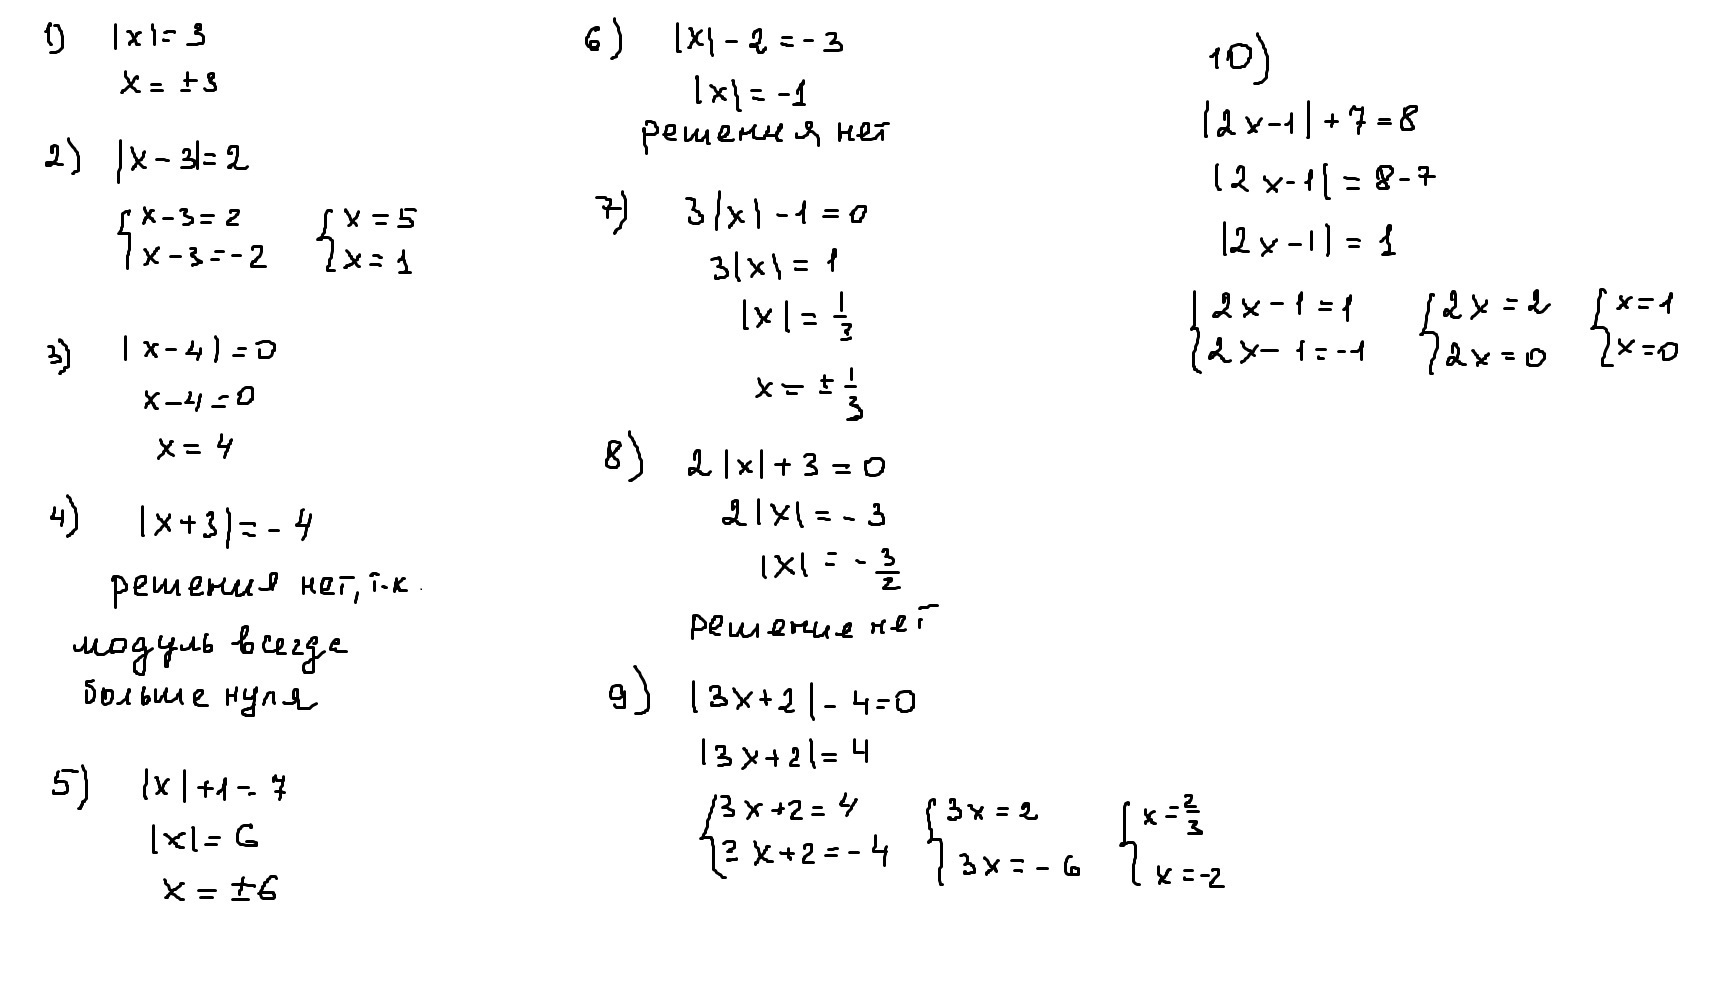 1) |x|= 3
x = ±3
2) |x-3|=2
{ x-3=2 { x=5
x-3=-2 x=1
3) |x-4|=0
x-4=0
x=4
4) |x+3|=-4
решения нет, т-к.
модуль всегда
больше нуля
5) |x|+1-7
|x|=6
x=±6
6) |x|-2=-3
|x|=-1
решения нет
7) 3|x|-1=0
3|x|=1
|x|=1/3
x=±1/3
8) 2|x|+3=0
2|x|=-3
|x|=-3/2
решение нет
9) |3x+2|-4=0
|3x+2|=4
{ 3x+2=4 { 3x=2 { x=2/3
3x+2=-4 3x=-6 x=-2
10)
|2x-1|+7=8
|2x-1|=8-7
|2x-1|=1
{ 2x-1=1 { 2x=2 { x=1
2x-1=-1 2x=0 x=0